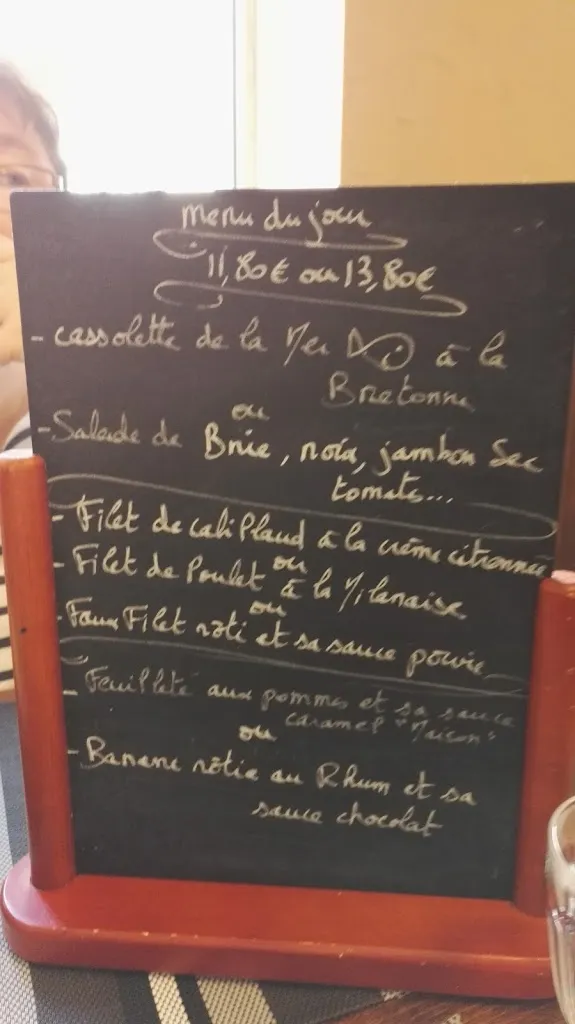 menu du jour
11,80€ ou 13,80€
- cassolette de la Mer à la
Bretonne
ou
- Salade de Brie, noix, jambon Sec
tomate...
- Filet de cabillaud à la crème citronnée
ou
- Filet de Poulet à la Milanaise
ou
- Faux Filet rôti et sa sauce poivre
- Feuilleté aux pommes et sa sauce
caramel "Maison"
ou
- Banane rôtie au Rhum et sa
sauce chocolat